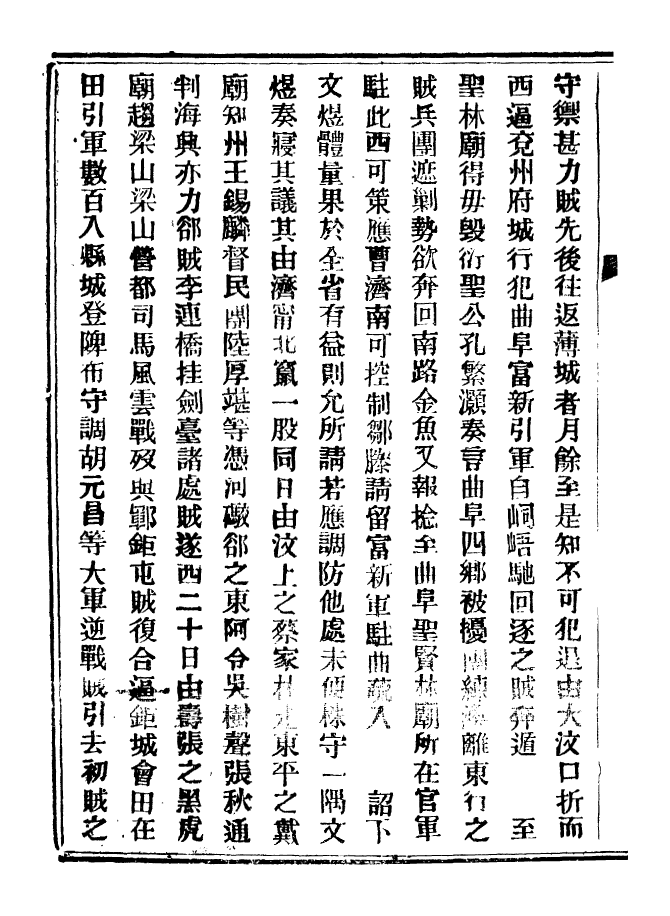 守禦甚力賊先後往返薄城者月餘至是知不可犯退由大汶口折而
西逼兗州府城行犯曲阜富新引軍自峒峿馳回逐之賊奔遁　至
聖林廟得毋毀衍聖公孔繁灝奏言曲阜四鄉被擾團練離東行之
賊兵團遮剿勢欲奔回南路金魚又報捻至曲阜聖賢林廟所在官軍
駐此西可策應曹濟南可控制鄒滕請留富新軍駐曲疏入　詔下
文煜體量果於全省有益則允所請若應調防他處未便株守一隅文
煜奏寢其議其由濟甯北竄一股同日由汶上之蔡家林走東平之戴
廟知州王錫麟督民團陸厚堪等憑河礮卻之東阿令吳樹聲張秋通
判海興亦力卻賊李連橋挂劍臺諸處賊遂西二十日由壽張之黑虎
廟趨梁山梁山營都司馬風雲戰歿與鄆鉅屯賊復合逼鉅城會田在
田引軍數百入縣城登陴布守調胡元昌等大軍逆戰賊引去初賊之